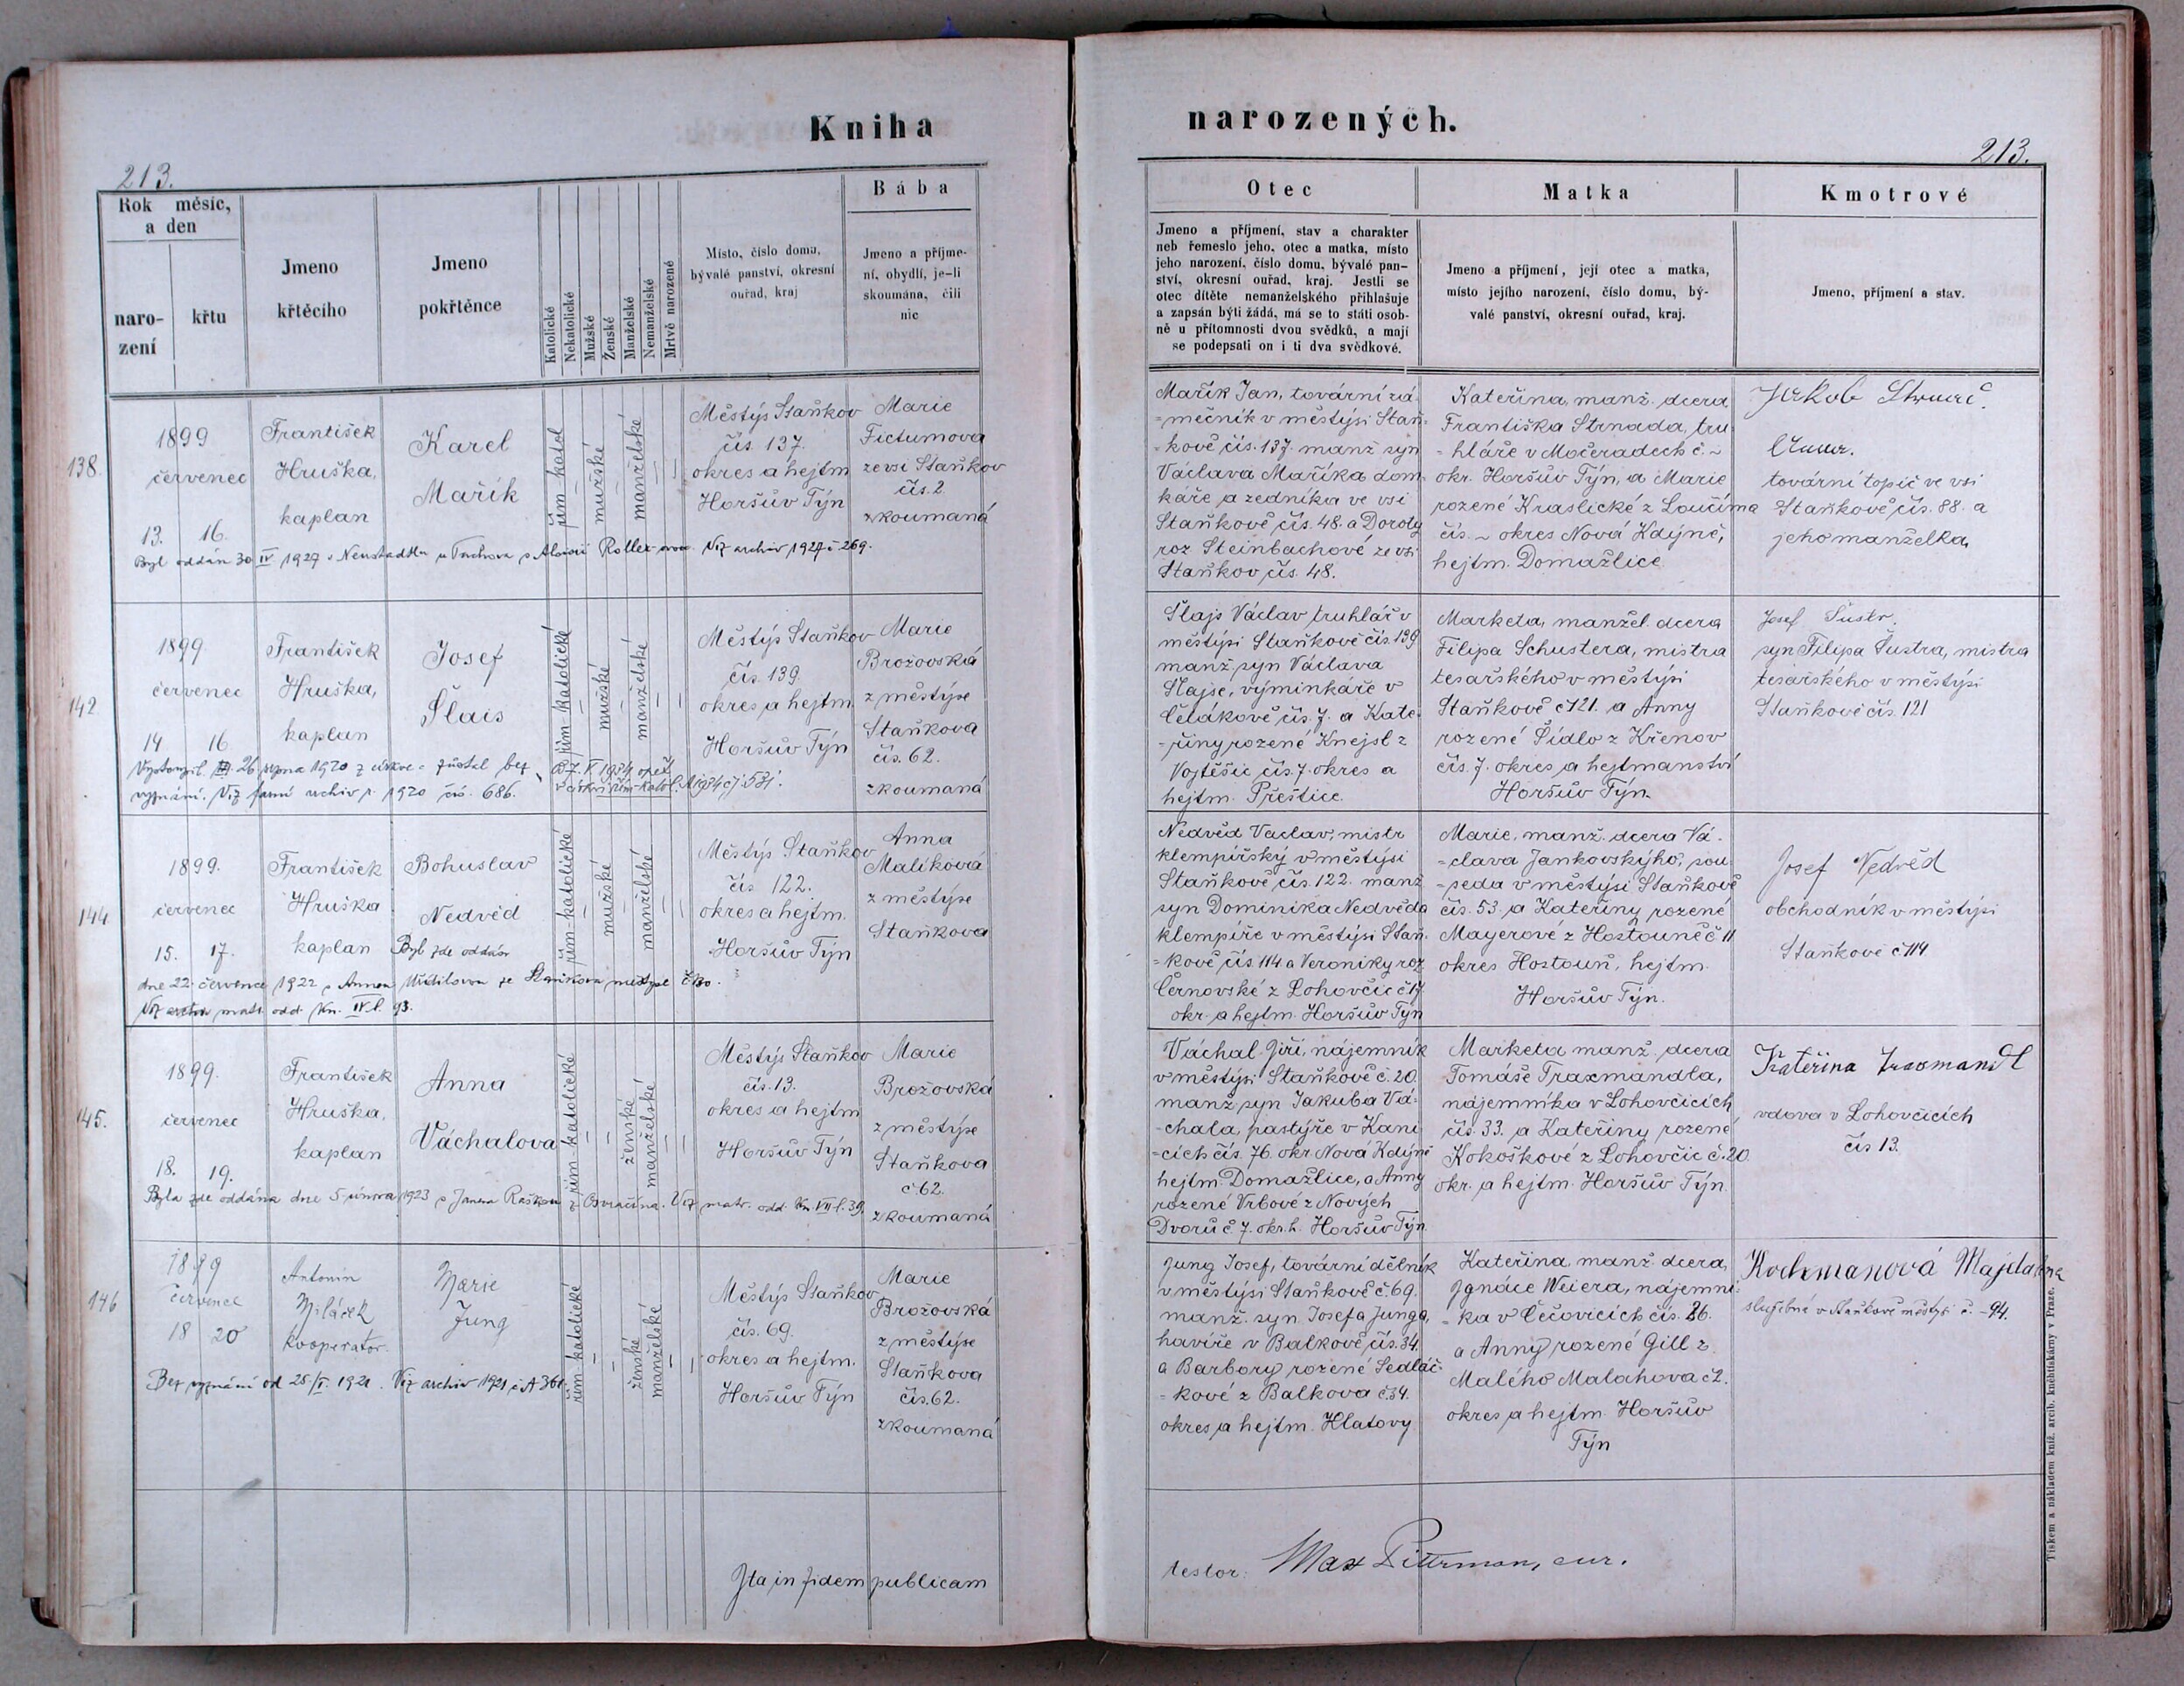 Kniha
213.
Rok měsíc,
a den
naro-
zení
křtu
Jmeno
křtěcího
Jmeno
pokřtěnce
Katolické
Nekatolické
Mužské
Ženské
Manželské
Nemanželské
Mrtvě narozené
Místo, číslo domu,
bývalé panství, okresní
ouřad, kraj
Bába
Jmeno a příjme-
ní, obydlí, je-li
skoumána, čili
nic
138.
1899
červenec
13. 16.
František
Hruška,
kaplan
Karel
Mařík
řím-katol
mužské
manželské
Městýs Staňkov
čís. 137.
okres a hejtm
Horšův Týn
Marie
Fictumova
ze vsi Staňkov
čís. 2
zkoumaná
Byl oddán 30 IV 1927 v Neustadtlu u Tachova s Aloisií Viz archiv 1927 č 269.
142
1899.
červenec
14 16
František
Hruška,
kaplan
Josef
Šlais
řím-katolické
mužské
manželské
Městýs Staňkov
čís. 139.
okres a hejtm
Horšův Týn
Marie
Brožovská
z městýse
Staňkova
čís. 62.
zkoumaná
Vystoupil 26 srpna 1920 z církve a zůstal bez
vyznání. Viz farní archiv r. 1920 čís. 686.
7. V. 1934 opět
v církvi řím-katol.
144
1899.
červenec
15. 17.
František
Hruška
kaplan
Bohuslav
Nedvěd
řím-katolické
mužské
manželské
Městýs Staňkov
čís 122.
okres a hejtm.
Horšův Týn
Anna
Malíková
z městýse
Staňkova
Byl zde oddán
dne 22. července 1922 s Annou ze Staňkova městyse č 130.
Viz matr. odd. Kn. IV l. 93.
145.
1899.
červenec
18. 19.
František
Hruška,
kaplan
Anna
Váchalova
řím-katolické
ženské
manželské
Městýs Staňkov
čís. 13.
okres a hejtm
Horšův Týn
Marie
Brožovská
z městýse
Staňkova
č 62.
zkoumaná
Byla zde oddána dne 5 února 1923 s Janem z Osvračína. Viz matr. odd. Kn. VII l. 39.
146
1899
červenec
18 20
Antonín
Miláček
kooperátor.
Marie
Jung
řím-katolické
ženské
manželské
Městýs Staňkov
čís. 69.
okres a hejtm.
Horšův Týn
Marie
Brožovská
z městýse
Staňkova
čís. 62.
zkoumaná
Bez vyznání od 25/I. 1921. Viz archiv 1921
Ita in fidem publicam
narozených.
213.
Otec
Jmeno a příjmení, stav a charakter
neb řemeslo jeho, otec a matka, místo
jeho narození, číslo domu, bývalé pan-
ství, okresní ouřad, kraj. Jestli se
otec dítěte nemanželského přihlašuje
a zapsán býti žádá, má se to státi osob-
ně u přítomnosti dvou svědků, a mají
se podepsati on i ti dva svědkové.
Matka
Jmeno a příjmení, její otec a matka,
místo jejího narození, číslo domu, bý-
valé panství, okresní ouřad, kraj.
Kmotrové
Jmeno, příjmení a stav.
Mařík Jan, tovární zá-
=mečník v městýsi Staň-
=kově čís. 137. manž syn
Václava Maříka dom-
káře a zedníka ve vsi
Staňkově čís. 48. a Doroty
roz Steinbachové ze vsi
Staňkov čís. 48.
Kateřina, manž. dcera
Františka Strnada, tru-
=hláře v Močeradech č. ~
okr. Horšův Týn, a Marie
rozené Kraslické z Loučíma
čís. ~ okres Nová Kdýně,
hejtm. Domažlice
Jakob
tovární topič ve vsi
Staňkově čís. 88. a
jeho manželka,
Šlajs Václav truhlář v
městýsi Staňkově čís. 139
manž. syn Václava
Šlajse, výminkáře v
čís. 7. a Kate-
=řiny rozené Knejsl z
Vojtěšic čís. 7. okres a
hejtm. Přeštice.
Marketa, manžel. dcera
Filipa Schustera, mistra
tesařského v městýsi
Staňkově č 121. a Anny
rozené Šídlo z Křenov
čís. 7. okres a hejtmanství
Horšův Týn
Josef Šustr,
syn Filipa Šustra, mistra
tesařského v městýsi
Staňkově čís. 121
Nedvěd Vaclav, mistr
klempířský v městýsi
Staňkově čís. 122. manž
syn Dominika Nedvěda
klempíře v městýsi Staň-
=kově čís. 114 a Veroniky roz
Černovské z Lohovčic č 17
okr. a hejtm. Horšův Týn
Marie, manž. dcera Vá-
=clava Jankovskýho, sou-
=seda v městýsi Staňkově
čís. 53. a Kateřiny rozené
Mayerové z Hostouně č 11
okres Hostouň, hejtm.
Horšův Týn.
Josef Nedvěd
obchodník v městýsi
Staňkově č 114
Váchal Jiří, nájemník
v městýsi Staňkově č. 20.
manž syn Jakuba Vá-
=chala, pastýře v Kani-
=cích čís. 76. okr Nová Kdýně
hejtm. Domažlice, a Anny
rozené Vrbové z Nových
Dvorů č 7. okr. h. Horšův Týn.
Marketa manž. dcera
Tomáše Traxmandla,
nájemníka v Lohovčicích
čís. 33. a Kateřiny rozené
Kokoškové z Lohovčic č. 20
okr. a hejtm. Horšův Týn.
Kateřina Traxmandl
vdova v Lohovčicích
čís 13.
Jung Josef, tovární dělník
v městýsi Staňkově č. 69.
manž. syn Josefa Junga,
havíře v Balkově čís. 34.
a Barbory rozené Sedláč-
=kové z Balkova č. 34.
okres a hejtm. Klatovy
Kateřina, manž. dcera,
Ignáce Weiera, nájemní-
=ka v Čečovicích čís. 26.
a Anny rozené Gill z
Malého Malahova č 2.
okres a hejtm Horšův
Týn
Majdalena
služebná v Staňkově městysi č. 94.
testor: Max Pittrman, cur.
Tiskem a nákladem kníž. arcib. knihtiskárny v Praze.